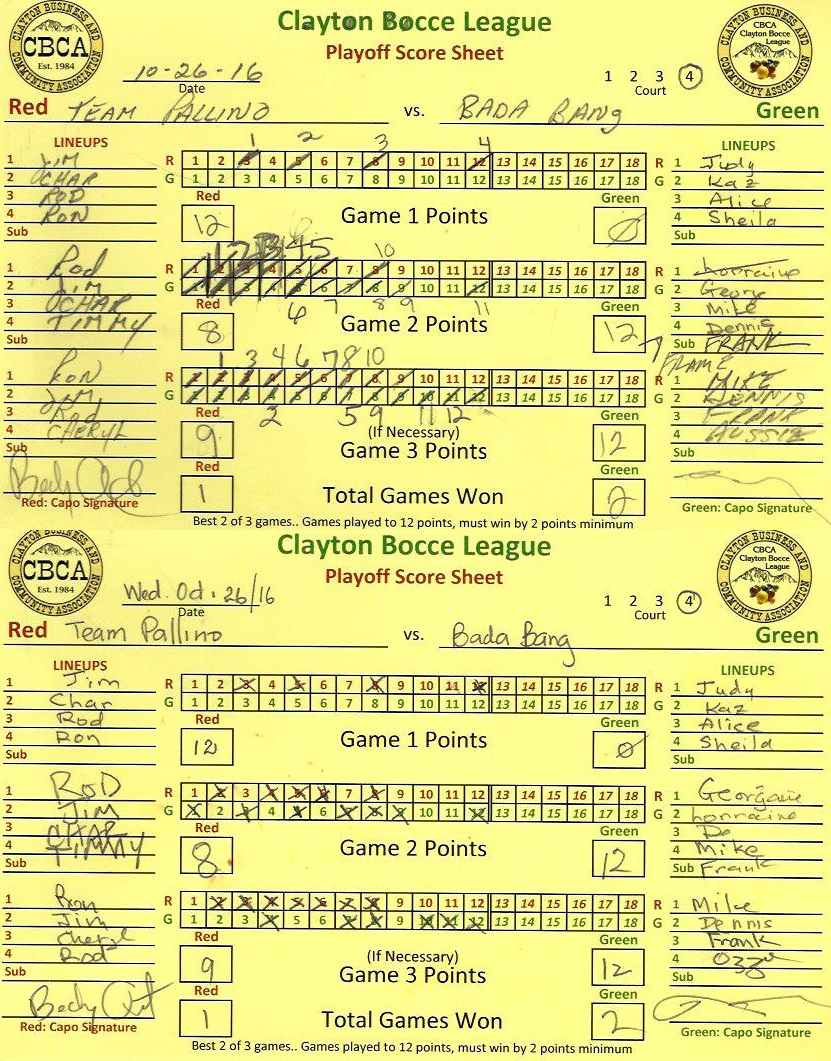 Clayton Bocce League
Playoff Score Sheet
CLAYTON BUSINESS AND COMMUNITY ASSOCIATION
CBCA
Est. 1984
CBCA
Clayton Bocce
League
10-26-16
Date
1 2 3 4
Court
Red TEAM PALLINO vs. BADA BANG Green
LINEUPS
LINEUPS
1 JIM
2 CHAR
3 ROD
4 RON
Sub
1 2 3 4
R 1 2 3 4 5 6 7 8 9 10 11 12 13 14 15 16 17 18 R
G 1 2 3 4 5 6 7 8 9 10 11 12 13 14 15 16 17 18 G
Red
Green
12 Game 1 Points 0
1 Judy
2 Kaz
3 Alice
4 Sheila
Sub
1 Rod
2 JIM
3 CHAR
4 TIMMY
Sub
1 2 3 4 5 10
R 1 2 3 4 5 6 7 8 9 10 11 12 13 14 15 16 17 18 R
G 1 2 3 4 5 6 7 8 9 10 11 12 13 14 15 16 17 18 G
6 7 8 9 11
Red
Green
8 Game 2 Points 12
1 Lorraine
2 George
3 Mike
4 Dennis
Sub FRANK
1 RON
2 JIM
3 Rod
4 CHERYL
Sub
1 3 4 6 7 8 10
R 1 2 3 4 5 6 7 8 9 10 11 12 13 14 15 16 17 18 R
G 1 2 3 4 5 6 7 8 9 10 11 12 13 14 15 16 17 18 G
2 5 9 11 12
Red
(If Necessary)
Green
9 Game 3 Points 12
1 MIKE
2 DENNIS
3 FRANK
4 AUSSIE
Sub
Red
Green
1 Total Games Won 2
Red: Capo Signature
Green: Capo Signature
Best 2 of 3 games.. Games played to 12 points, must win by 2 points minimum
Clayton Bocce League
Playoff Score Sheet
CLAYTON BUSINESS AND COMMUNITY ASSOCIATION
CBCA
Est. 1984
CBCA
Clayton Bocce
League
Wed. Oct. 26/16
Date
1 2 3 4
Court
Red Team Pallino vs. Bada Bang Green
LINEUPS
LINEUPS
1 Jim
2 Char
3 Rod
4 Ron
Sub
R 1 2 3 4 5 6 7 8 9 10 11 12 13 14 15 16 17 18 R
G 1 2 3 4 5 6 7 8 9 10 11 12 13 14 15 16 17 18 G
Red
Green
12 Game 1 Points 0
1 Judy
2 Kaz
3 Alice
4 Sheila
Sub
1 ROD
2 JIM
3 CHAR
4 TIMMY
Sub
R 1 2 3 4 5 6 7 8 9 10 11 12 13 14 15 16 17 18 R
G 1 2 3 4 5 6 7 8 9 10 11 12 13 14 15 16 17 18 G
Red
Green
8 Game 2 Points 12
1
2 Lorraine
3 De
4 Mike
Sub Frank
1 Ron
2 Jim
3 Cheryl
4 Rod
Sub
R 1 2 3 4 5 6 7 8 9 10 11 12 13 14 15 16 17 18 R
G 1 2 3 4 5 6 7 8 9 10 11 12 13 14 15 16 17 18 G
Red
(If Necessary)
Green
9 Game 3 Points 12
1 Mike
2 Dennis
3 Frank
4 Ozzie
Sub
Red
Green
1 Total Games Won 2
Red: Capo Signature
Green: Capo Signature
Best 2 of 3 games.. Games played to 12 points, must win by 2 points minimum